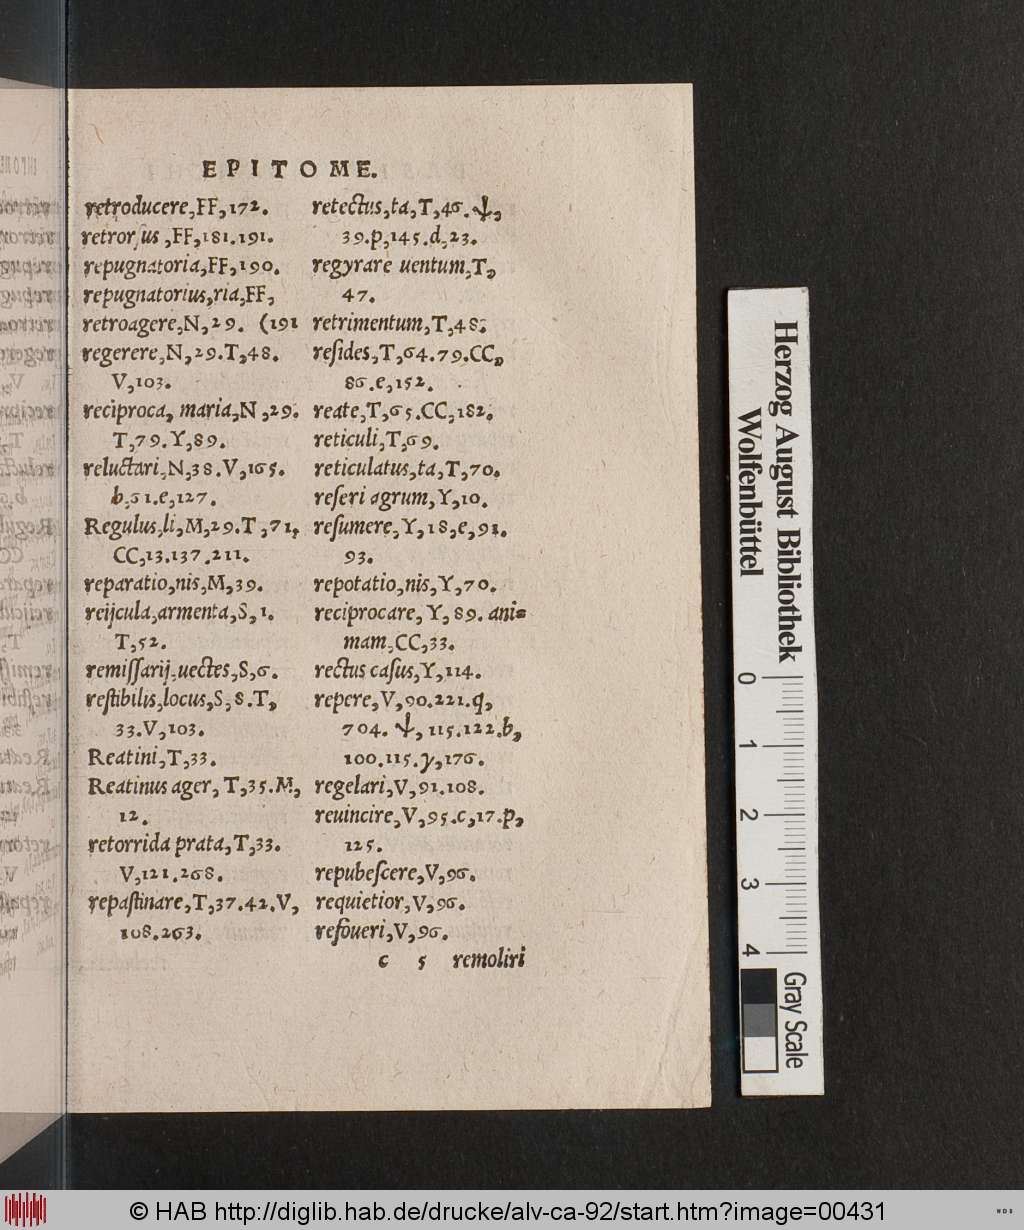 EPITOME.
retroducere,FF,172.
retrorſus ,FF,181.191.
repugnatoria,FF,190.
repugnatorius,ria,FF,
retroagere,N,29. (191
regerere,N,29.T,48.
V,103.
reciproca, maria,N,29.
T,79.Y,89.
reluctari,N,38.V,165.
b,61.e,127.
Regulus,li,M,29.T,71,
CC,13.137.211.
reparatio,nis,M,39.
reijcula,armenta,S,1.
T,52.
remiſſarij,uectes,S,6.
reſtibilis,locus,S,8.T,
33.V,103.
Reatini,T,33.
Reatinus ager, T,35.M,
12.
retorrida prata,T,33.
V,121.268.
repaſtinare,T,37.42.V,
108.263.
retectus,ta,T,46.
39.p,145.d,23.
regyrare uentum,T,
47.
retrimentum,T,48.
reſides,T,64.79.CC,
86.e,152.
reate,T,65.CC,182.
reticuli,T,69.
reticulatus,ta,T,70.
reſeri agrum,Y,10.
reſumere,Y,18,e,91.
93.
repotatio,nis,Y,70.
reciprocare, Y,89. ani=
mam,CC,33.
rectus caſus,Y,114.
repere,V,90.221.q,
704. ψ, 115.122.b,
100.115.y,176.
regelari,V,91.108.
reuincire,V,95.c,17.p,
125.
repubeſcere,V,96.
requietior,V,96.
refoueri,V,96.
c 5 remoliri
Herzog August Bibliothek
Wolfenbüttel
0 1 2 3 4
Gray Scale
© HAB http://diglib.hab.de/drucke/alv-ca-92/start.htm?image=00431